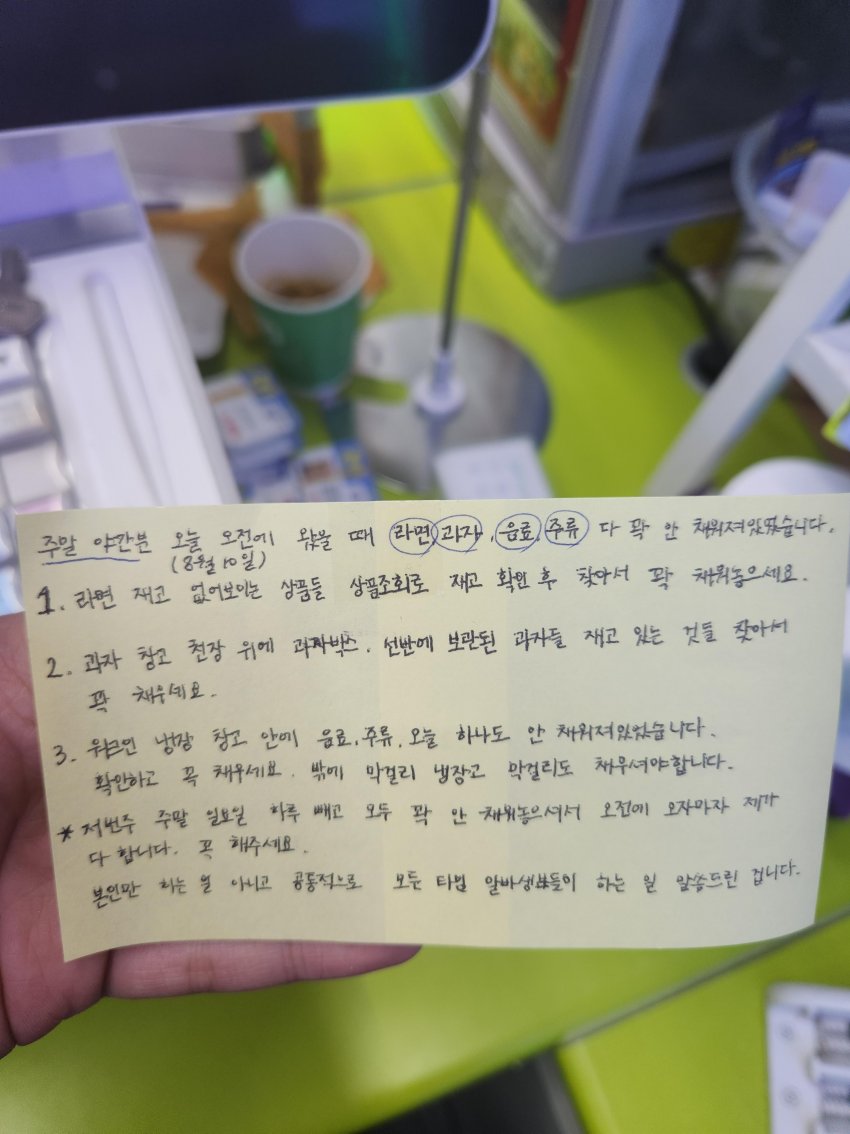 주말 야간분 오늘 오전에 왔을 때 라면, 과자, 음료, 주류 다 꽉 안 채워져있었습니다.
(8월 10일)
1. 라면 재고 없어보이는 상품들 상품조회로 재고 확인 후 찾아서 꽉 채워놓으세요.
2. 과자 창고 천장 위에 과자박스, 선반에 보관된 과자들 재고 있는 것들 찾아서
꽉 채우세요.
3. 워크인 냉장 창고 안에 음료, 주류, 오늘 하나도 안 채워져있었습니다.
확인하고 꼭 채우세요. 밖에 막걸리 냉장고 막걸리도 채우셔야합니다.
* 저번주 주말 일요일 하루 빼고 모두 꽉 안 채워놓으셔서 오전에 오자마자 제가
다 합니다. 꼭 해주세요.
본인만 하는 일 아니고 공통적으로 모든 타임 알바생분들이 하는 일 말씀드린 겁니다.